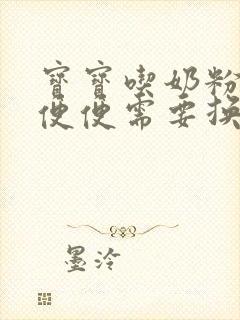 寶寶喫奶粉
便便需要換
墨泠